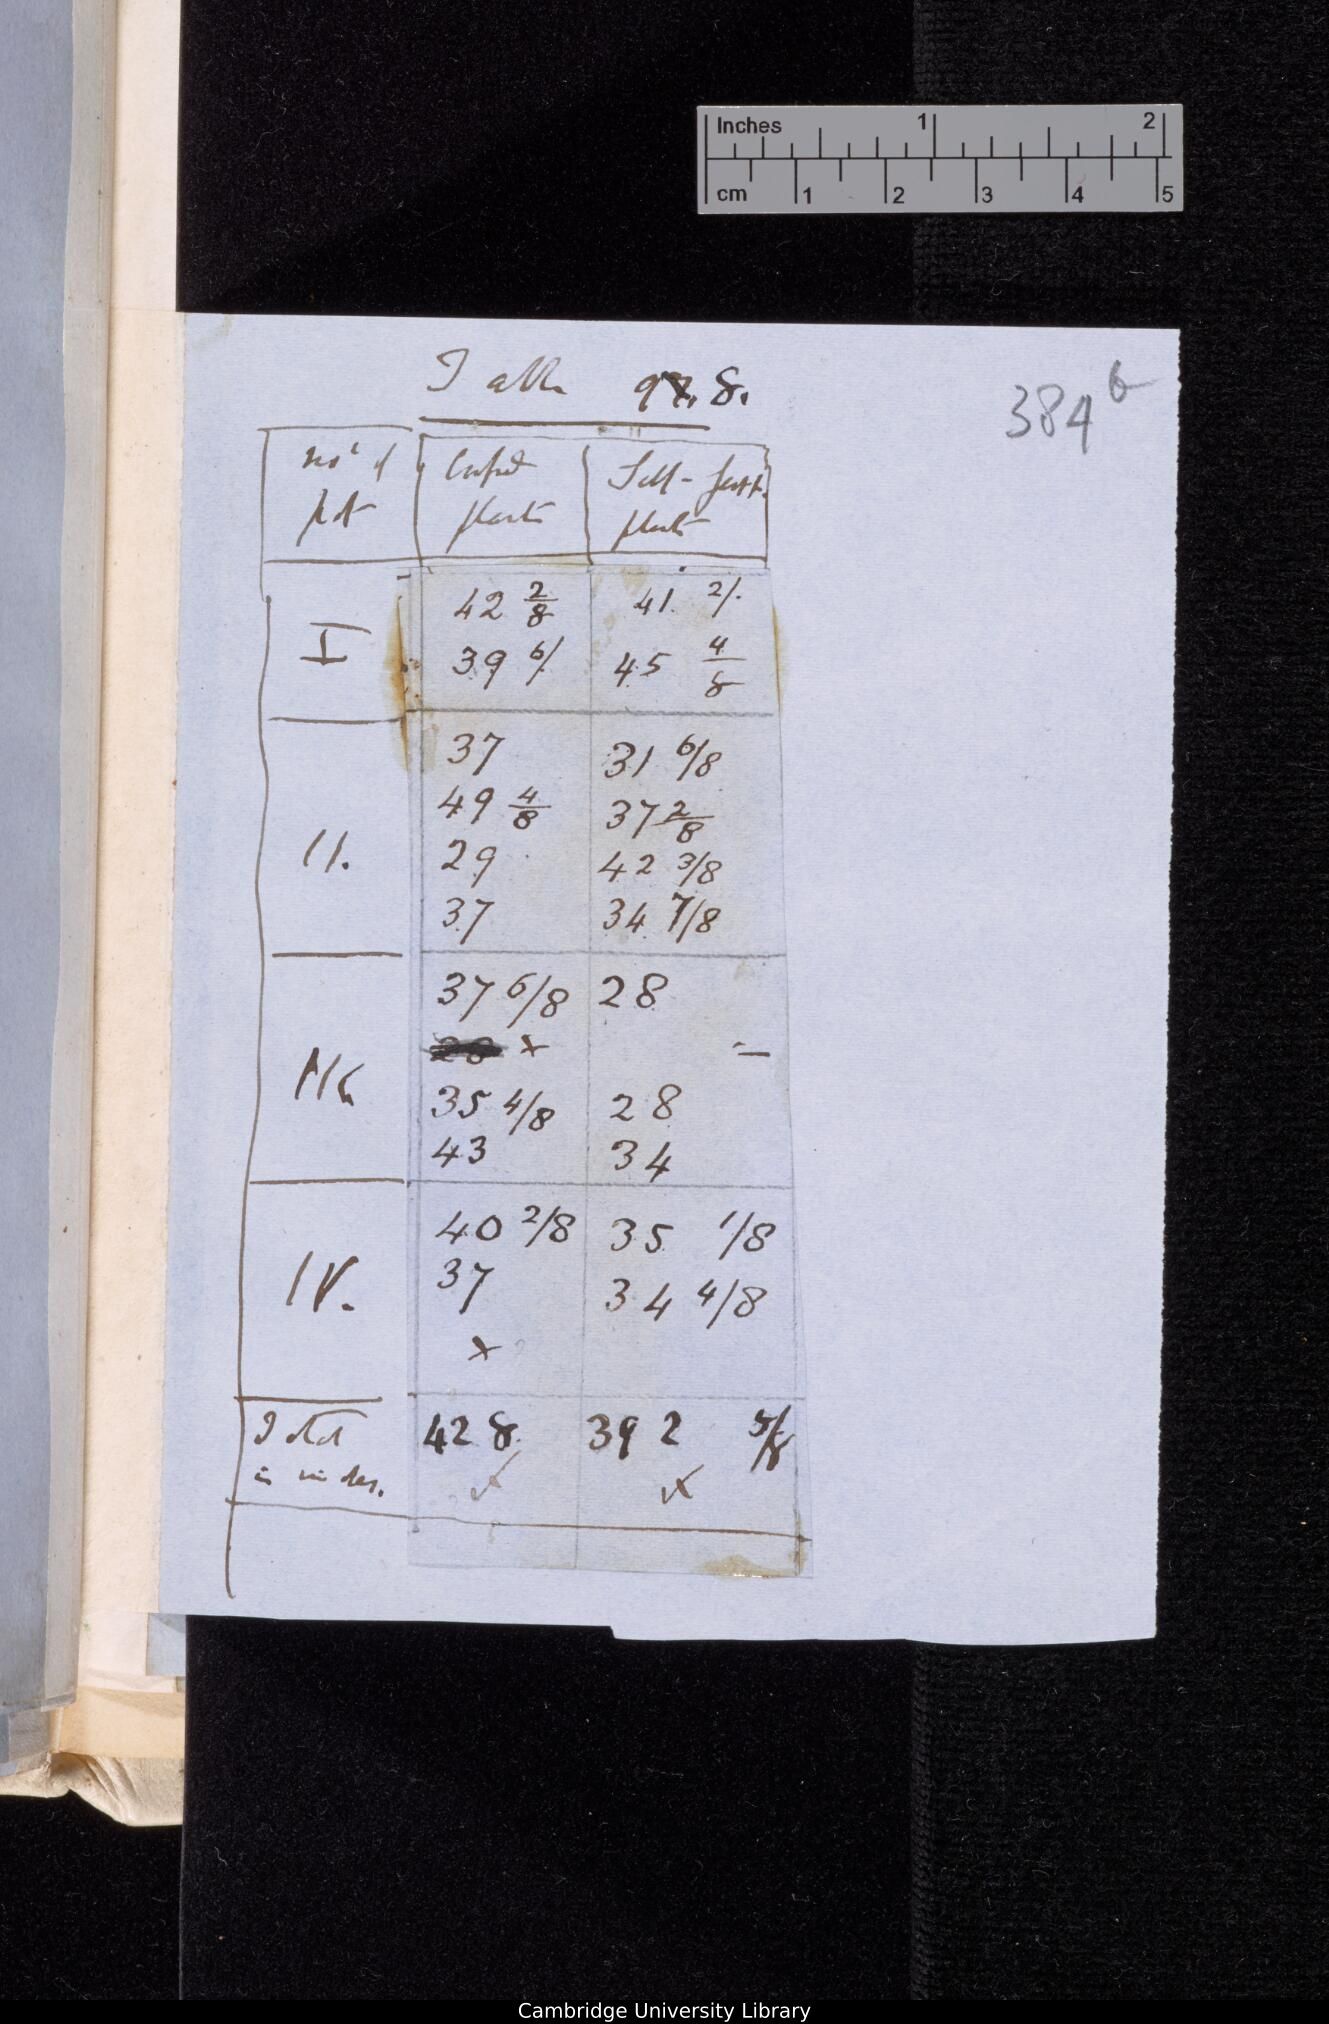 Inches 1 2
cm 1 2 3 4 5
Table 97. 8.
384 b
No. of Crossed Self-fert.
pot plants plants
I
42 2/8 41 2/.
39 6/. 45 4/8
II.
37 31 6/8
49 4/8 37 2/8
29 42 3/8
37 34 7/8
III
37 6/8 28
28 x —
35 4/8 28
43 34
IV.
40 2/8 35 1/8
37 34 4/8
x
Total 428. 392 5/8
in inches. x x
Cambridge University Library